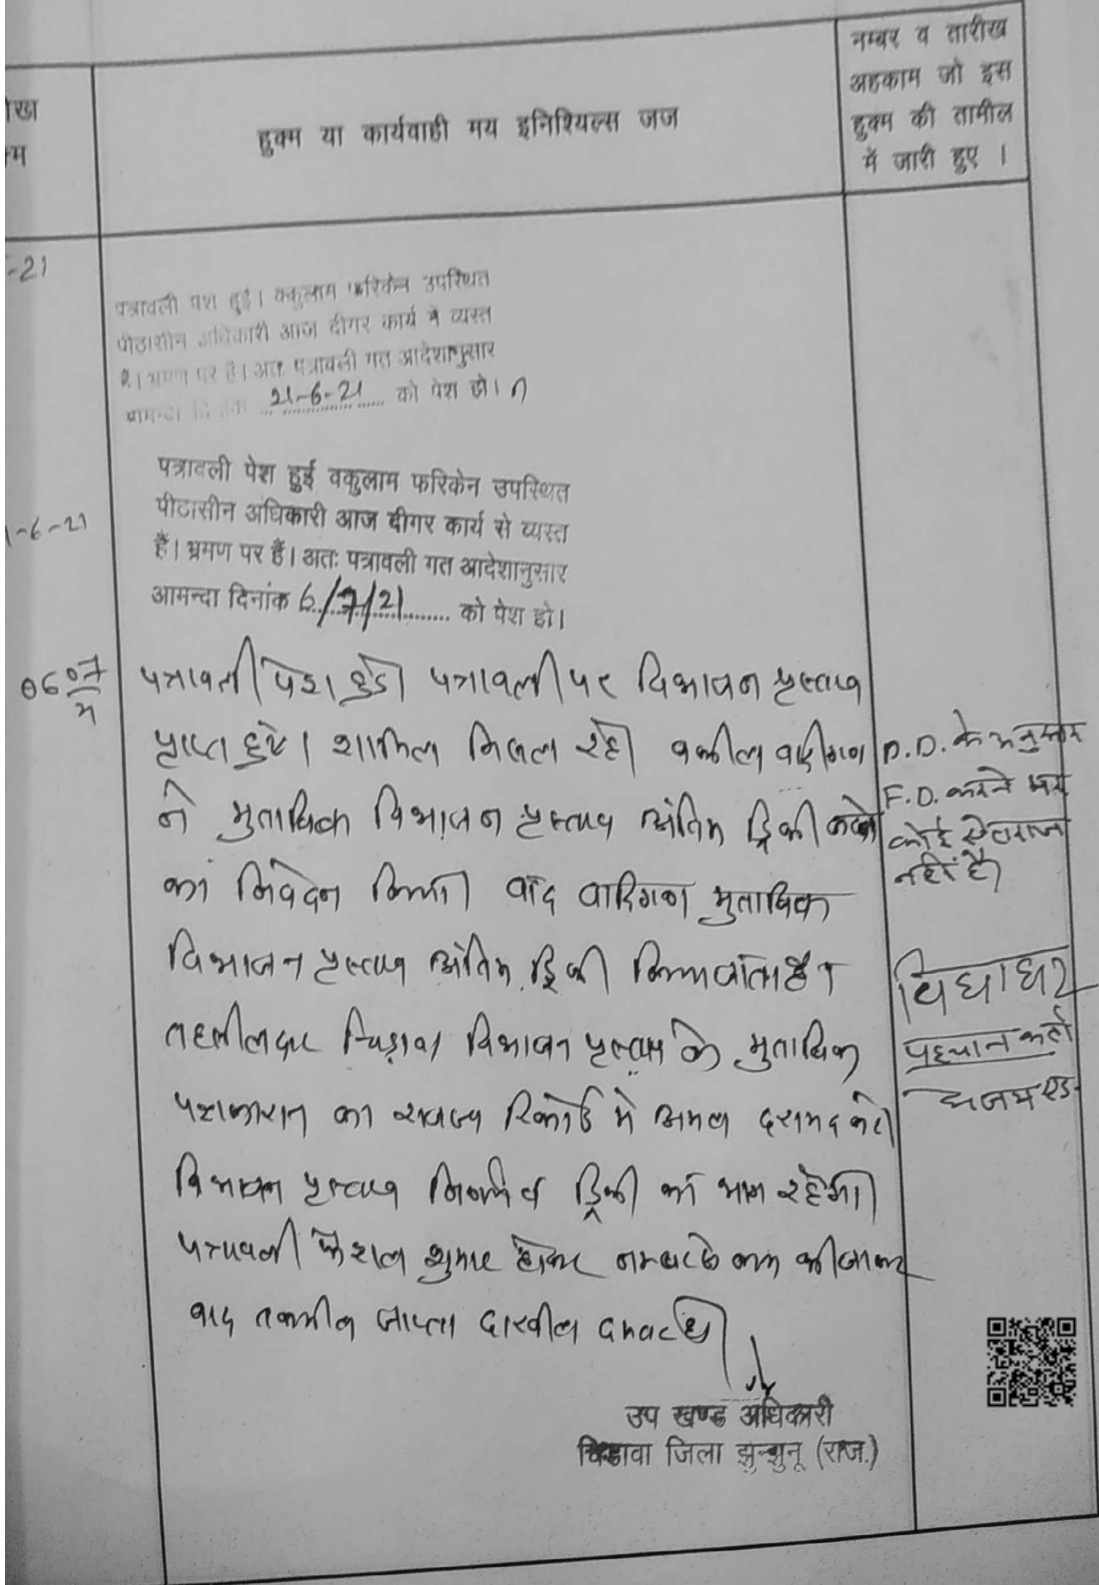 नम्बर व तारीख
अहकाम जो इस
हुक्म की तामील
में जारी हुए ।
हुक्म या कार्यवाही मय इनिशियल्स जज
-21
पत्रावली पेश हुई। वकुलाम फरिकेन उपस्थित
पीठासीन अधिकारी आज दीगर कार्य में व्यस्त
है। भ्रमण पर है। अतः पत्रावली गत आदेशानुसार
आमन्दा दिनांक 21-6-21 को पेश हो।
-6-21
पत्रावली पेश हुई वकुलाम फरिकेन उपस्थित
पीठासीन अधिकारी आज दीगर कार्य से व्यस्त
हैं। भ्रमण पर हैं। अतः पत्रावली गत आदेशानुसार
आमन्दा दिनांक 6/7/21 को पेश हो।
पत्रावली पेश हुई। पत्रावली पर विभाजन प्रस्ताव
प्राप्त हुये। शामिल मिसल रहे। वकील वादीगण
ने मुताबिक विभाजन प्रस्ताव अंतिम डिक्री करने
का निवेदन किया। वाद वादिगण मुताबिक
विभाजन प्रस्ताव अंतिम डिक्री किया जाता है।
तहसीलदार चिड़ावा विभाजन प्रस्ताव के मुताबिक
पक्षकारान का राजस्व रिकोर्ड में अमल दरामद करे।
विभाजन प्रस्ताव निर्णय व डिक्री का भाग रहेगा।
पत्रावली फैशल शुमार होकर नम्बर से कम की जाकर
बाद तकमील जाप्ता दाखील दफ्तर हो।
P.D. के अनुसार
F.D. करने पर
कोई ऐतराज
नहीं है।
विद्याधर
पहचान कर्ता
उप खण्ड अधिकारी
चिडावा जिला झुन्झुनू (राज.)